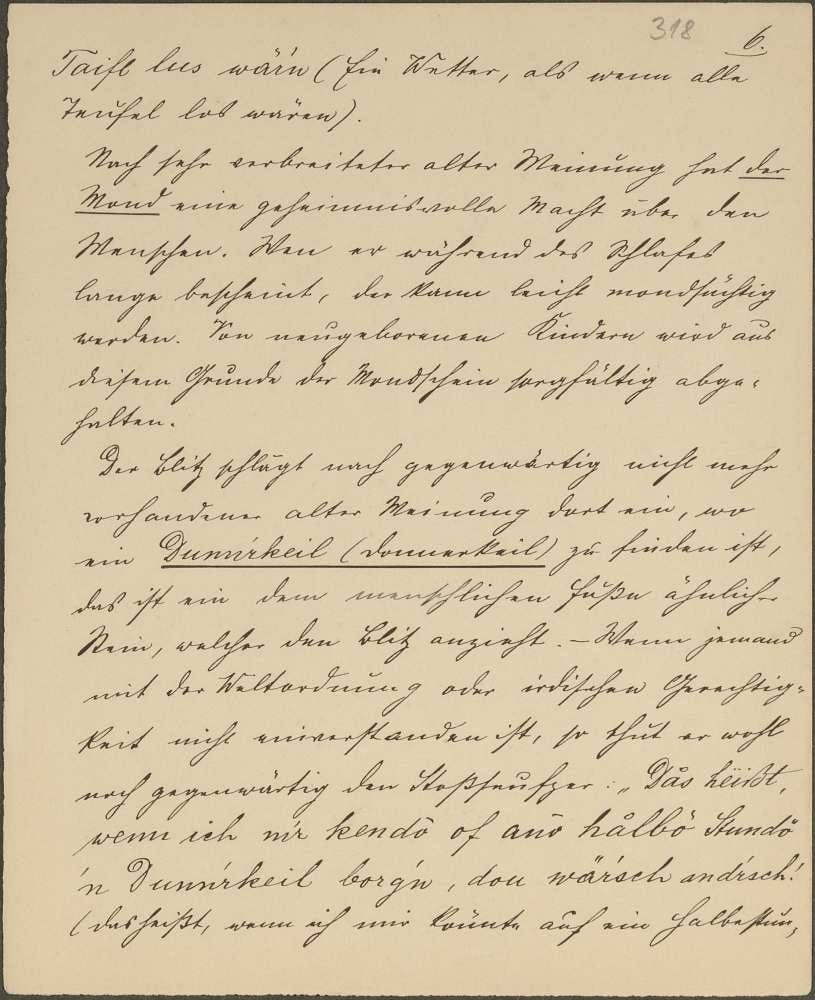 318 6.
Taifl lus wär'n (Ein Wetter, als wenn alle
Teufel los wären).
Nach sehr verbreiteter alter Meinung hat der
Mond eine geheimnisvolle Macht über den
Menschen. Wen er während des Schlafes
lange bescheint, der kann leicht mondsüchtig
werden. Von neugeborenen Kindern wird aus
diesem Grunde der Mondschein sorgfältig abge-
halten.
Der Blitz schlägt nach gegenwärtig nicht mehr
vorhandener alter Meinung dort ein, wo
ein Dunnrkeil (Donnerkeil) zu finden ist,
das ist ein dem menschlichen Fuße ähnlicher
Stein, welcher den Blitz anzieht. – Wenn jemand
mit der Weltordnung oder irdischen Gerechtig-
keit nicht einverstanden ist, so thut er wohl
noch gegenwärtig den Stoßseufzer: „Dås hëißt,
wenn ich mr kendö of anö hålbö Stundö
'n Dunnrkeil borg'n, dou wär'sch andrsch!
(das heißt, wenn ich mir könnte auf ein Halbestün-